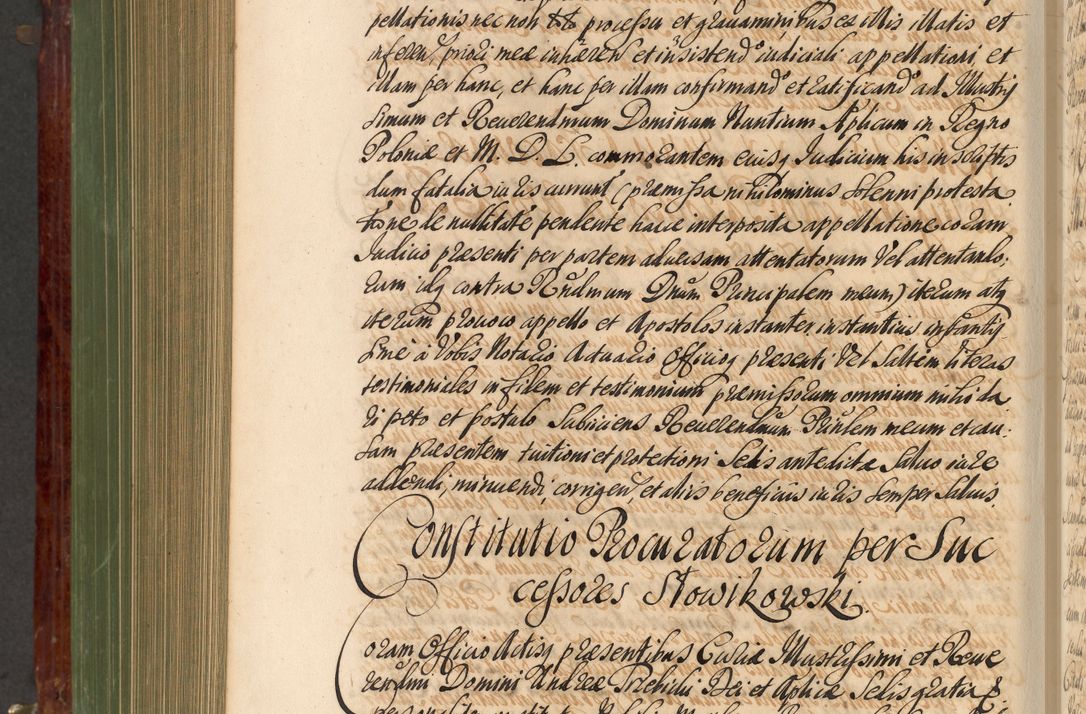 pellationis nec non toto processu et gravaminibus ex illis illatis et
inferen, priori meæ inhæren et insistend iudiciali appellationi, et
illam per hanc, et hanc per illam confirmand et ratificand ad Illustris
simum et Reverendmum Dominum Nuntium Aplicum in Regno
Poloniæ et M. D. L. commorantem eiusq Iudicium his in scriptis
dum fatalia iuris currunt (præmissa nihilominus solenni protesta
tione de nullitate pendente hacce interposita appellatione coram
Iudicio præsenti per partem adversam attentatorum vel attentando;
rum idq contra Rndmum Dnum Principalem meum) iterum atq
iterum provoco appello et Apostolos instanter instantius instantis
sime à Vobis Notario Actuario Officiiq præsenti vel saltem literas
testimoniales in fidem et testimonium præmissorum omnium mihi da
ri peto et postulo Subiiciens Reverendmum Prinlem meum et cau:
sam præsentem tuitioni et protectioni Sedis antedictæ salvo iure
addendi, minuendi, corrigen, et aliis beneficiis iuris semper salvis.
Constitutio Procuratorum per Suc
cessores Słowikowski.
Coram Officio Actisq præsentibus Curiæ Illustrissimi et Reve
rendmi Domini Andreæ Trzebicki Dei et Aplicæ Sedis gratia